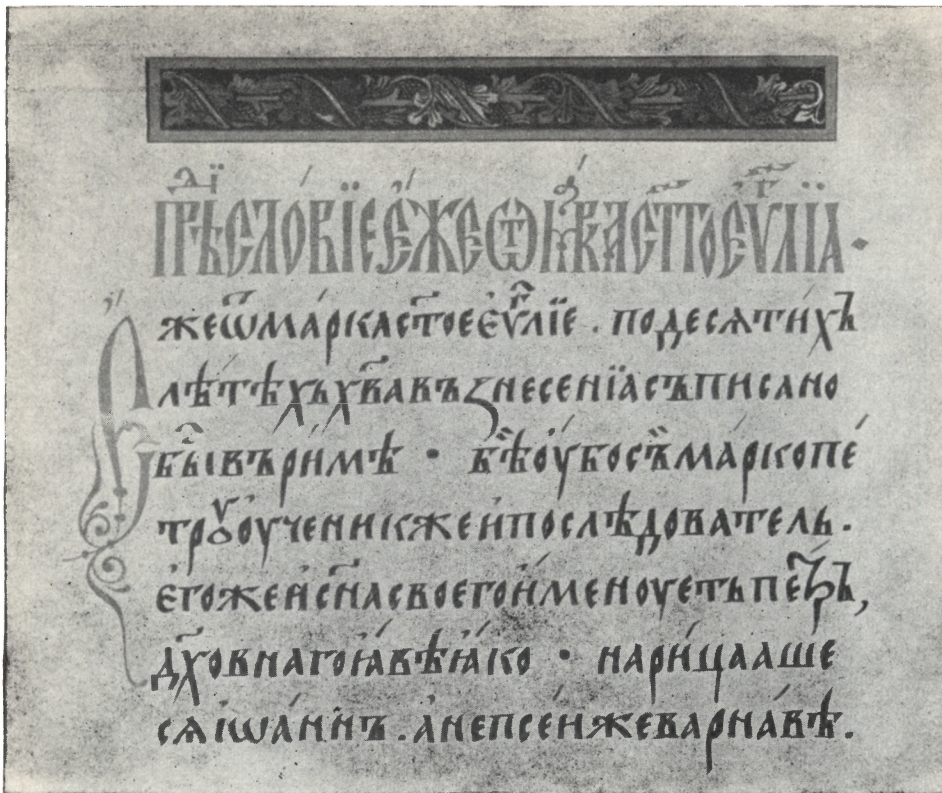 прѣдисловїе е́же ѿ мр҃ка ст҃го еѵⷢ҇лїа ·
Е҆же ѿ ма́рка ст҃ое е҆ѵⷢ҇лїе . по десѧти́хъ
лѣтѣхъ х҃ва възнесенїа съписано
бⷭ҇ы въ ри́мѣ · бѣ оу҆бо съ̏ ма́рко пе
трꙋ оу҆ченик же и҆ послѣдователь .
е҆гоже и҆ сн҃а своего и҆меноуеть петръ,
дх҃овнаго ꙗ҆вѣ ꙗ҆ко · нари́цааше
сѧ і҆ѡа́ннъ . а҆непсеи же варна́вѣ .